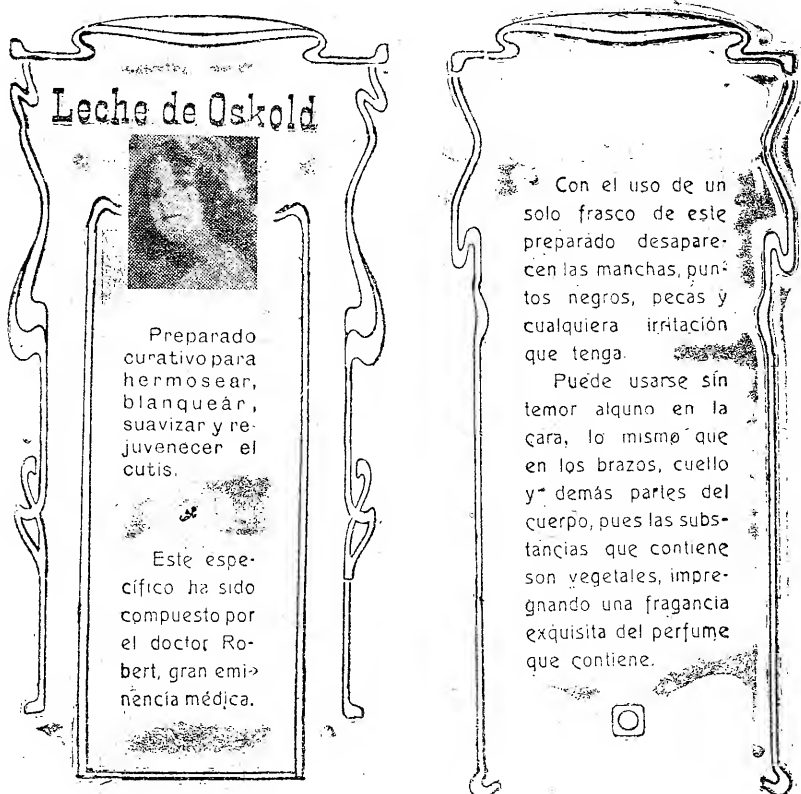 Leche de Oskold
Preparado
curativo para
hermosear,
blanquear,
suavizar y re-
juvenecer el
cutis.
Este espe-
cífico ha sido
compuesto por
el doctor Ro-
bert, gran emi-
nencia médica.
Con el uso de un
solo frasco de este
preparado desapare-
cen las manchas, pun-
tos negros, pecas y
cualquiera irritación
que tenga.
Puede usarse sin
temor alguno en la
cara, lo mismo que
en los brazos, cuello
y demás partes del
cuerpo, pues las subs-
tancias que contiene
son vegetales, impre-
gnando una fragancia
exquisita del perfume
que contiene.